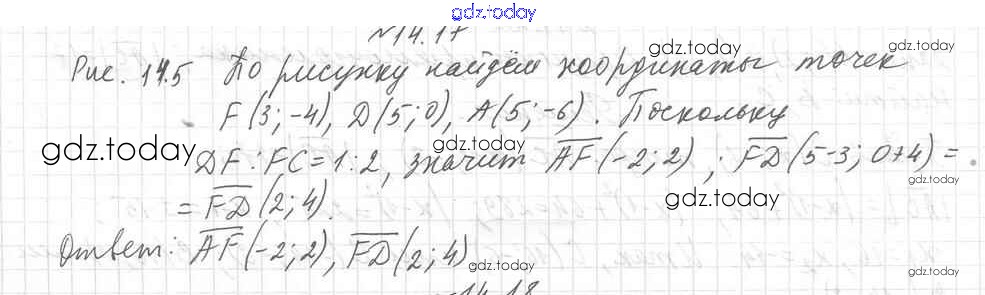 gdz.today
№14.17
gdz.today
Рис. 14.5 По рисунку найдём координаты точек
F(3; -4), D(5; 0), A(5; -6). Поскольку
gdz.today gdz.today
DF : FC = 1 : 2, значит AF(-2; 2) ; FD(5-3; 0+4) =
gdz.today
= FD(2; 4). gdz.today
Ответ: AF(-2; 2), FD(2; 4)
gdz.today gdz.today
14.18